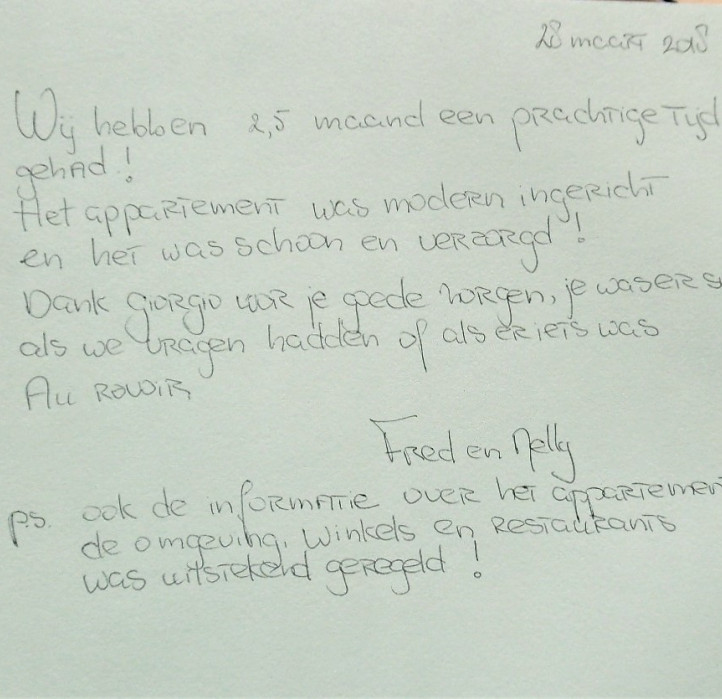 28 maart 2018
Wij hebben 2,5 maand een prachtige tijd
gehad!
Het appartement was modern ingericht
en het was schoon en verzorgd!
Dank Giorgio voor je goede zorgen, je was er s
als we vragen hadden of als er iets was
Au Rowir
Fred en Nelly
ps. ook de informatie over het appartemen
de omgeving, winkels en Restaurants
was uitstekend geregeld!